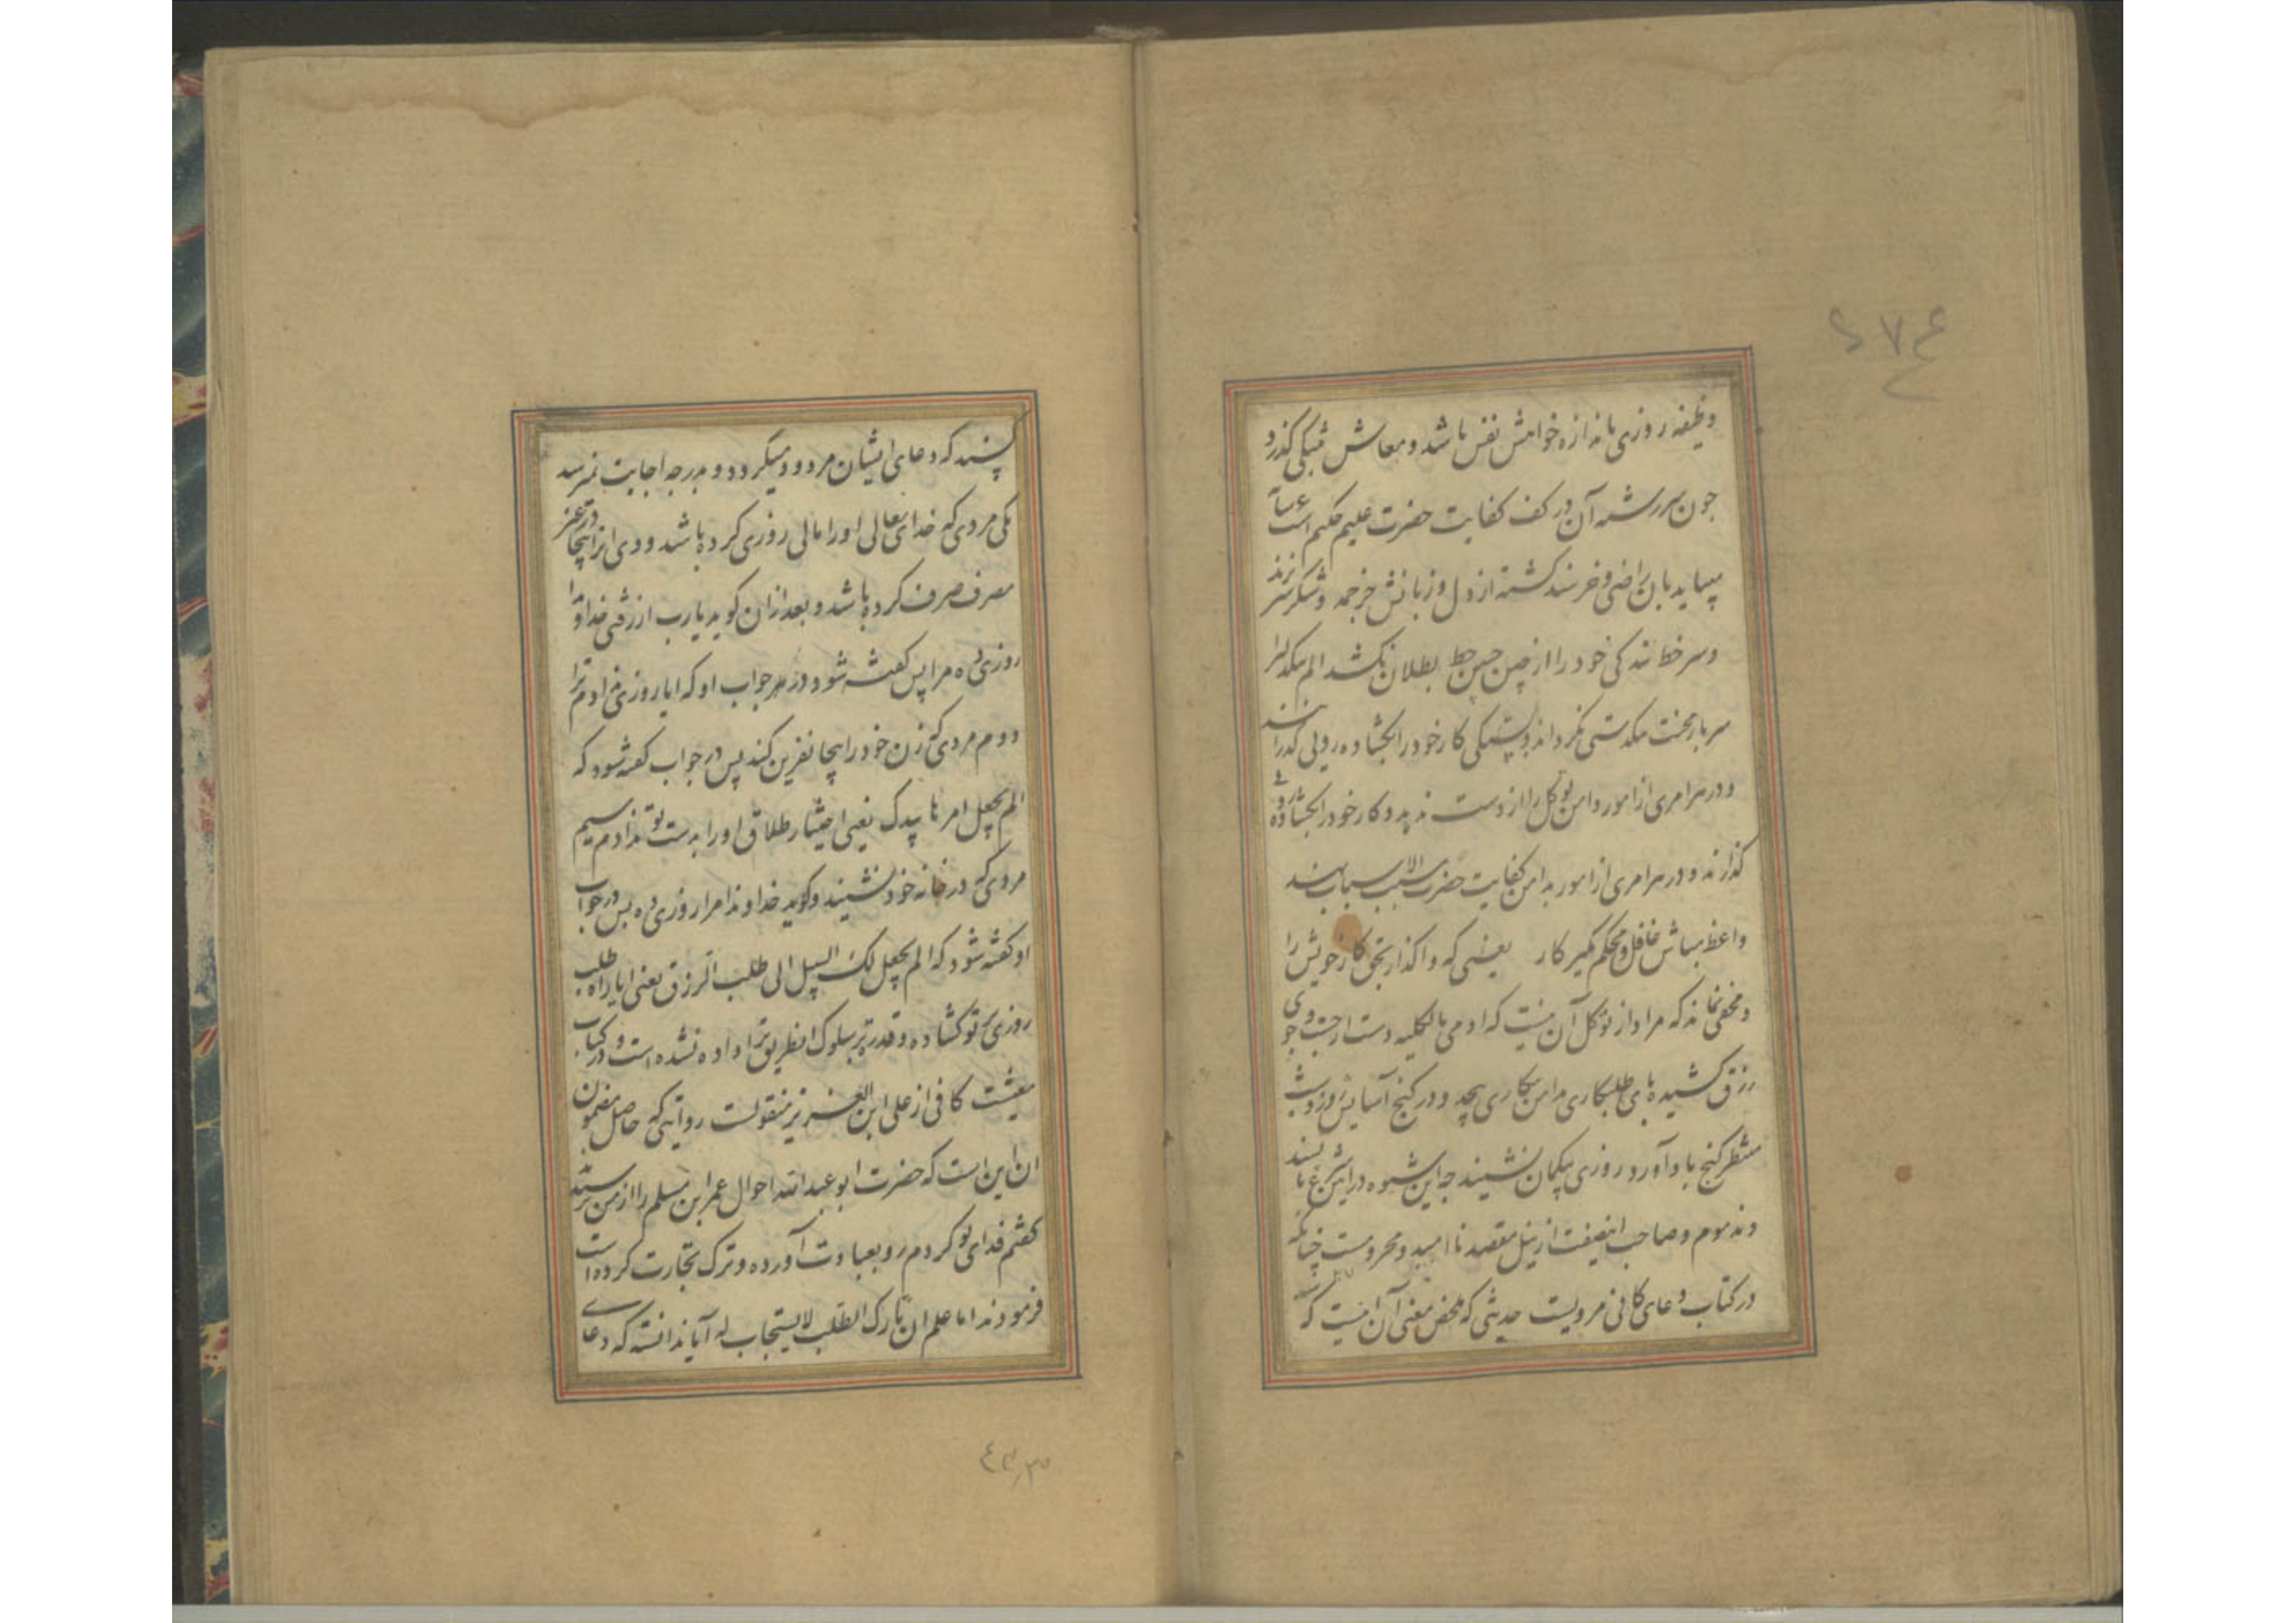 وظیفه روزی باندازه خواهش نفس باشد و معاش به تنگی گذرد
چون سررشته آن در کف کفایت حضرت علیم حکیم است
میباید بآن راضی و خرسند گشته از دل و زبانش جز حمد و شکر سر نزند
و سر خط بندگی خود را از چین جبین خط بطلان نکشد الم
سربار محنت تنگدستی نگرداند و بستگی کار خود را بگشاده رویی گذراند
و در هر امری از امور دامن توکل را از دست ندهد و کار خود را بگشاده رویی
گذراند و در هر امری از امور بدامن کفایت حضرت مسبب الاسباب
واعظ مباش غافل و محکم مگیر کار یعنی که واگذار بحق کار خویش را
و مخفی نماند که مراد از توکل آن نیست که ادمی بالکلیه دست از جست و جوی
رزق کشیده پای طلبکاری بدامن بیکاری پیچد و در کنج آسایش روز و شب
منتظر گنج بادآورد روزی بیگمان نشیند چه این شیوه در این شرع ناپسند
و مذموم و صاحب اینصفت از نیل مقصد ناامید و محرومست چنانکه
در کتاب دعای کافی مرویست حدیثی که ملخص معنی آن اینست که
پسند که دعای ایشان مردود میگردد و بدرجه اجابت نمیرسد
یکی مردی که خدای تعالی او را مالی روزی کرده باشد و وی انرا بیجا در غیر
مصرف صرف کرده باشد و بعد ازان گوید یارب ارزقنی خداوندا
روزی ده مرا پس گفته شود در جواب او که ایا روزی ندادم ترا
دوم مردی که زن خود را بیجا نفرین کند پس در جواب گفته شود که
الم یجعل امرها بیدک یعنی اختیار طلاق او را بدست تو ندادم سیم
مردی که در خانه خود نشیند و گوید خداوندا مرا روزی ده پس در جواب
او گفته شود که الم یجعل لک السبیل الی طلب الرزق یعنی ایا راه طلب
روزی بر تو گشاده و قدرت بر سلوک انطریق ترا داده نشده است و در کتاب
معیشت کافی از علی ابن العزیز منقولست روایتی که حاصل مضمون
ان این است که حضرت ابو عبدالله احوال عمر ابن مسلم را از من پرسیدند
گفتم فدای تو کردم رو بعبادت آورده و ترک تجارت کرده است
فرمودند اما علم ان تارک الطلب لا یستجاب له آیا ندانسته که دعای